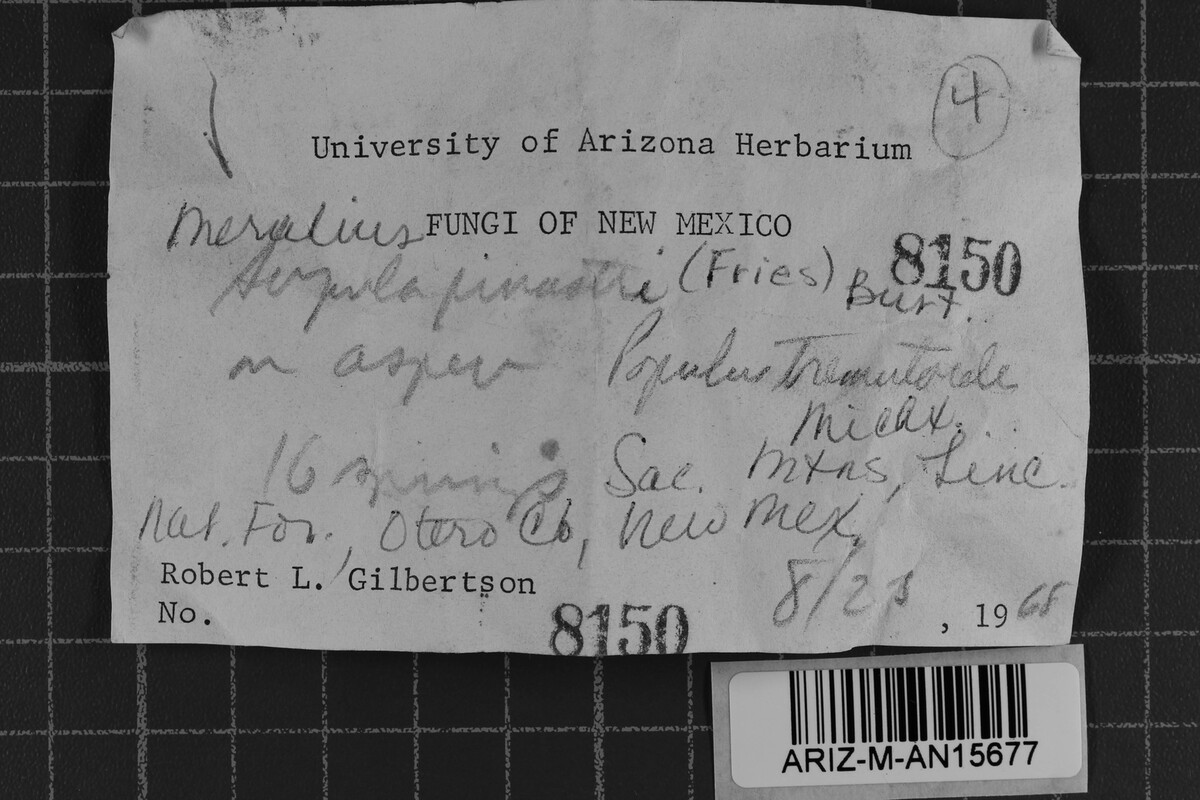 4
University of Arizona Herbarium
Merulius FUNGI OF NEW MEXICO
8150
Serpula pinastri (Fries) Burt.
on aspen Populus tremuloide
Michx.
16 springs Sac. Mtns, Linc.
Nat. For., Otero Co, New Mex,
Robert L. Gilbertson
8/23, 1968
No. 8150
ARIZ-M-AN15677